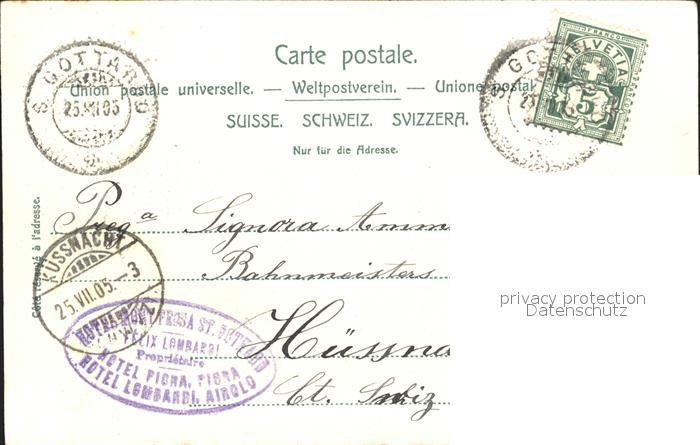 Carte postale.
Union postale universelle. — Weltpostverein. — Unione postal
SUISSE. SCHWEIZ. SVIZZERA.
Nur für die Adresse.
S. GOTTARDO
25.VII.05
S. GOT
FRANCO
HELVETIA
5
Côté réservé à l'adresse.
Prega Signora Amm
Bahnmeisters
KÜSSNACHT
25.VII.05.-3
Küssna
Ct. Swiz
ST. GOTHARD
FELIX LOMBARDI
Propriétaire
HOTEL PIORA, PIORA
HOTEL LOMBARDI, AIROLO
privacy protection
Datenschutz